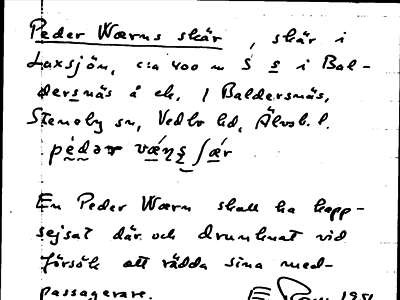 Peder Wærns skär, skär i
Laxsjön, c:a 400 m S s i Bal-
dersnäs å ek, / Baldersnäs,
Steneby sn, Vedbo hd, Älvsb. l.
pèdər væŋʂ ʃǽr
En Peder Wærn skall ha kapp-
sejsat där och drunknat vid
försök att rädda sina med-
passagerare.